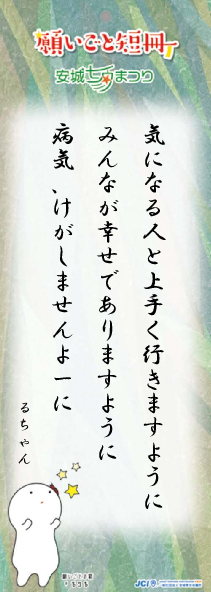 願いごと短冊
安城七夕まつり
気になる人と上手く行きますように
みんなが幸せでありますように
病気、けがしませんよーに
るちゃん
JCI